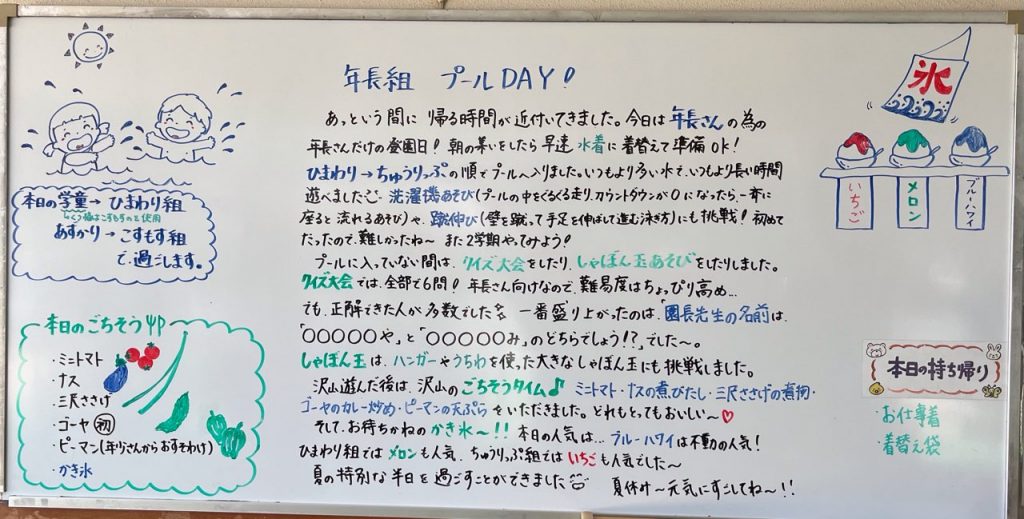 年長組 プールDAY!
あっという間に 帰る時間が近付いてきました。今日は年長さんの為の
年長さんだけの登園日! 朝の集いをしたら早速 水着に着替えて準備OK!
ひまわり→ちゅうりっぷの順でプールへ入りました。いつもより多い水で、いつもより長い時間
遊べました 洗濯機あそび(プールの中をくるくる走り、カウントダウンが0になったら一斉に
座ると流れるあそび)や、蹴伸び(壁を蹴って手足を伸ばして進む泳ぎ方)にも挑戦! 初めて
だったので、難しかったね~ また2学期やってみよう!
プールに入っていない間は、クイズ大会をしたり、しゃぼん玉あそびをしたりしました。
クイズ大会では、全部で6問! 年長さん向けなので、難易度はちょっぴり高め…
でも、正解できた人が多数でした 一番盛り上がったのは、「園長先生の名前は、
「○○○○○や」と「○○○○○み」のどちらでしょう!?」でした~。
しゃぼん玉は、ハンガーやうちわを使った大きなしゃぼん玉にも挑戦しました。
沢山遊んだ後は、沢山のごちそうタイム♪ ミニトマト・ナスの煮びたし・三尺ささげの煮物・
ゴーヤのカレー炒め・ピーマンの天ぷらをいただきました。どれもとってもおいしい~♡
そして、お待ちかねのかき氷~!! 本日の人気は… ブルーハワイは不動の人気!
ひまわり組ではメロンも人気、ちゅうりっぷ組ではいちごも人気でした~
夏の特別な半日を過ごすことができました 夏休み~元気にすごしてね~!!
本日の学童→ひまわり組
あずかり→こすもす組
で過ごします。
本日のごちそう
・ミニトマト
・ナス
・三尺ささげ
・ゴーヤ 初
・ピーマン(年少さんからおすそわけ)
・かき氷
氷
いちご
メロン
ブルーハワイ
本日の持ち帰り
・お仕事着
・着替え袋